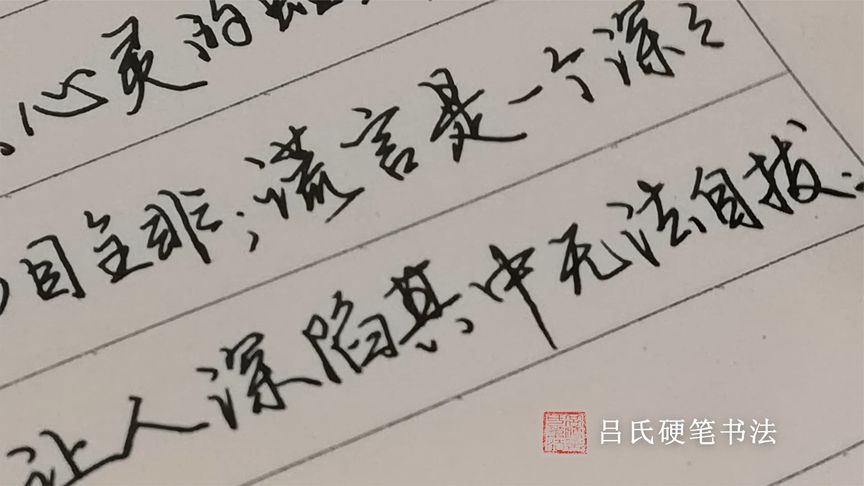 心灵的
目全非；谎言是一个深深
让人深陷其中无法自拔
吕氏硬笔书法